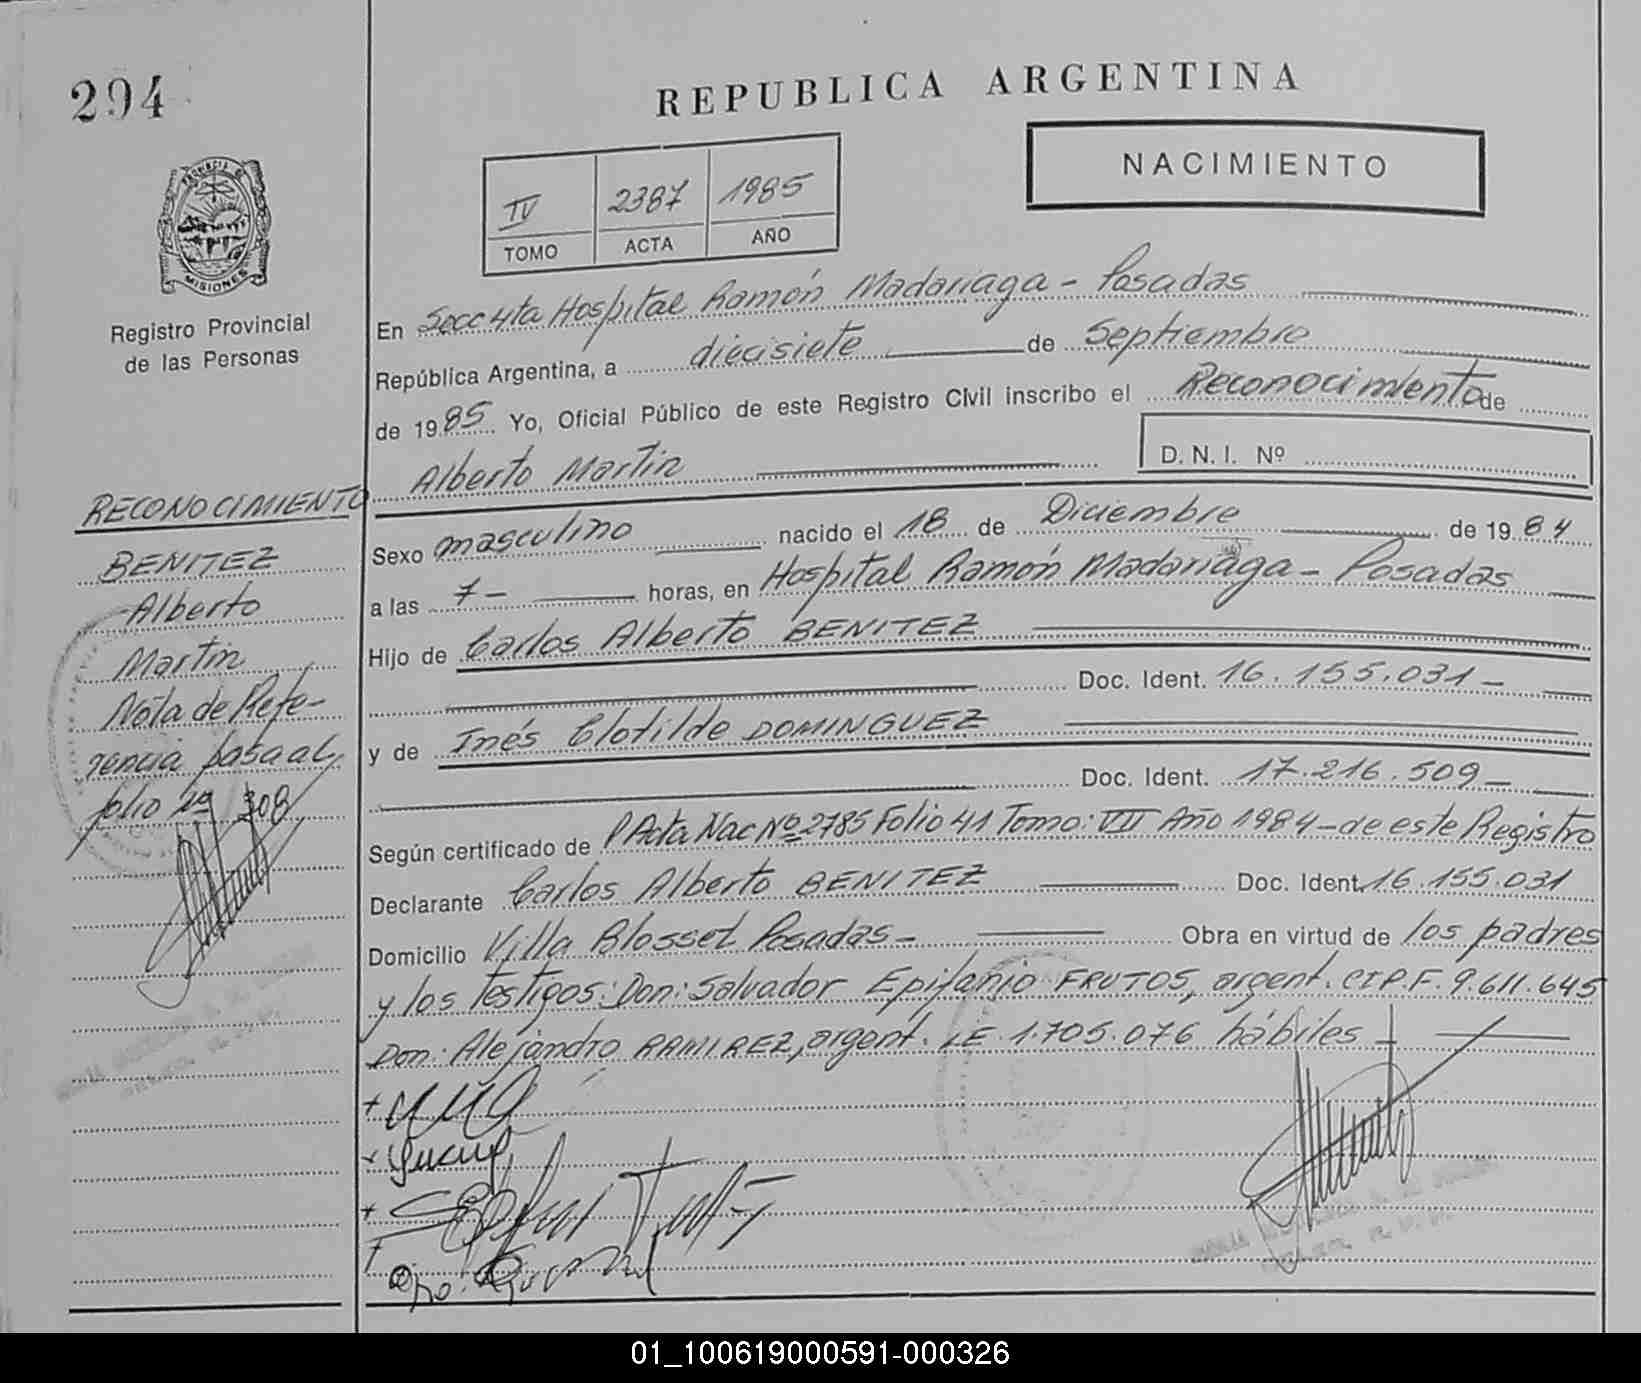 294
REPUBLICA ARGENTINA
NACIMIENTO
IV 2387 1985
TOMO ACTA AÑO
PROVINCIA DE
MISIONES
Registro Provincial
de las Personas
En Secc 4ta Hospital Ramón Madariaga - Posadas
República Argentina, a diecisiete de Septiembre
de 1985 Yo, Oficial Público de este Registro Civil inscribo el Reconocimiento de
Alberto Martin D. N. I. Nº
RECONOCIMIENTO
BENITEZ
Alberto
Martin
Nota de Refe-
rencia pasa al
folio nº 308
Sexo masculino nacido el 18 de Diciembre de 1984
a las 7- horas, en Hospital Ramón Madariaga - Posadas
Hijo de Carlos Alberto BENITEZ
Doc. Ident. 16.155.031-
y de Inés Clotilde DOMINGUEZ
Doc. Ident. 17.216.509-
Según certificado de P Acta Nac Nº 2785 Folio 41 Tomo: VII Año 1984 - de este Registro
Declarante Carlos Alberto BENITEZ Doc. Ident. 16.155.031
Domicilio Villa Blosset Posadas- Obra en virtud de los padres
y los testigos: Don: Salvador Epifanio FRUTOS, argent. CIP.F. 9.611.645
Don: Alejandro RAMIREZ, argent. LE 1.705.076 hábiles
01_100619000591-000326